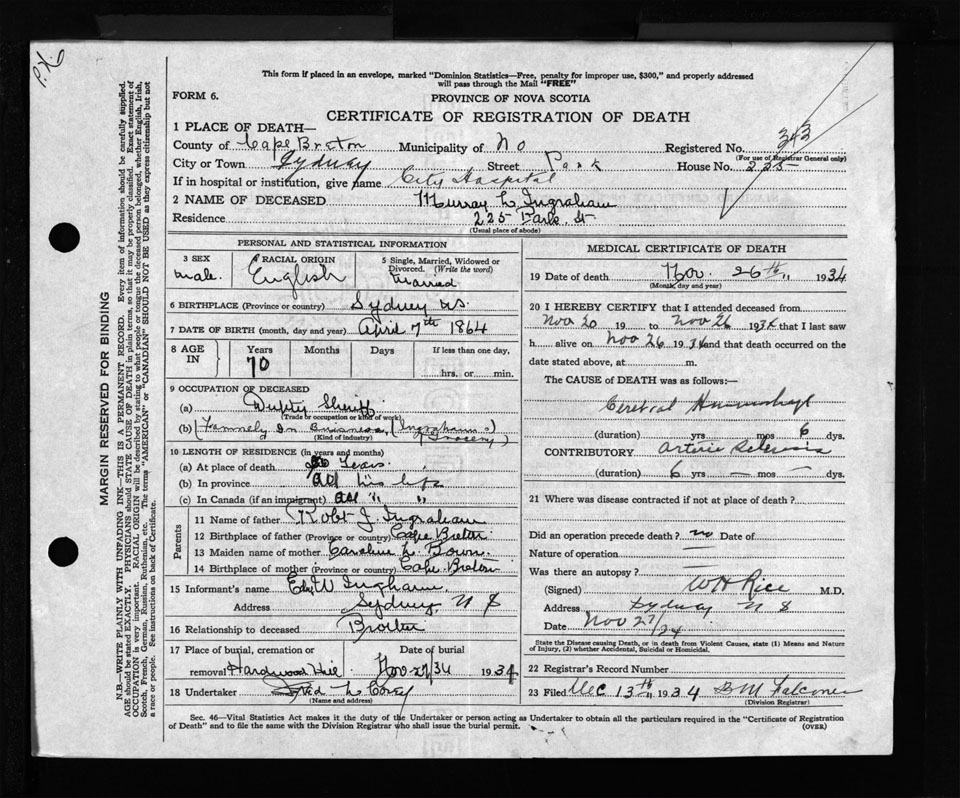 P.X6
This form if placed in an envelope, marked "Dominion Statistics—Free, penalty for improper use, $300," and properly addressed
will pass through the Mail "FREE"
FORM 6.
PROVINCE OF NOVA SCOTIA
CERTIFICATE OF REGISTRATION OF DEATH
1 PLACE OF DEATH—
County of Cape Breton Municipality of No Registered No. 343
(For use of Registrar General only)
City or Town Sydney Street Park House No. 225
If in hospital or institution, give name City Hospital
2 NAME OF DECEASED Murray L Ingraham
Residence 225 Park St
(Usual place of abode)
PERSONAL AND STATISTICAL INFORMATION
3 SEX male
4 RACIAL ORIGIN English
5 Single, Married, Widowed or Divorced. (Write the word) Married
6 BIRTHPLACE (Province or country) Sydney NS.
7 DATE OF BIRTH (month, day and year) April 7th 1864
8 AGE IN Years 70 Months Days If less than one day, hrs. or min.
9 OCCUPATION OF DECEASED
(a) Deputy Sheriff
(Trade or occupation or kind of work)
(b) Formely In Business (Ingrahams Grocery)
(Kind of industry)
10 LENGTH OF RESIDENCE (in years and months)
(a) At place of death Years
(b) In province All his life
(c) In Canada (if an immigrant) All " "
Parents
11 Name of father Robt J. Ingraham
12 Birthplace of father (Province or country) Cape Breton
13 Maiden name of mother Caroline L.
14 Birthplace of mother (Province or country) Cape Breton
15 Informant's name W Ingham
Address Sydney N S
16 Relationship to deceased Brother
17 Place of burial, cremation or removal Hardwood Hill
Date of burial Nov 34 1934
18 Undertaker L
(Name and address)
MEDICAL CERTIFICATE OF DEATH
19 Date of death Nov. 26th " 1934
(Month, day and year)
20 I HEREBY CERTIFY that I attended deceased from
Nov 20 19 to Nov 26 1934 that I last saw
h alive on Nov 26 1934 and that death occurred on the
date stated above, at m.
The CAUSE of DEATH was as follows:—
Cerebral Hemorrhage
(duration) yrs mos 6 dys.
CONTRIBUTORY Arterio Sclerosis
(duration) 6 yrs — mos — dys.
21 Where was disease contracted if not at place of death?
Did an operation precede death? no Date of
Nature of operation —
Was there an autopsy? —
(Signed) WH Rice M.D.
Address Sydney N S
Date Nov 27/34
State the Disease causing Death, or in death from Violent Causes, state (1) Means and Nature
of Injury, (2) whether Accidental, Suicidal or Homicidal.
22 Registrar's Record Number
23 Filed Dec 13th " 1934 B M Falconer
(Division Registrar)
Sec. 46—Vital Statistics Act makes it the duty of the Undertaker or person acting as Undertaker to obtain all the particulars required in the "Certificate of Registration
of Death" and to file the same with the Division Registrar who shall issue the burial permit.
(OVER)
MARGIN RESERVED FOR BINDING
N.B.—WRITE PLAINLY WITH UNFADING INK—THIS IS A PERMANENT RECORD. Every item of information should be carefully supplied.
AGE should be stated EXACTLY. PHYSICIANS should STATE CAUSE OF DEATH in plain terms, so that it may be properly classified. Exact statement of
OCCUPATION is very important. RACIAL ORIGIN will be described by stating to what people or tongue the deceased person belonged, whether English, Irish,
Scotch, French, German, Russian, Ruthenian, etc. The terms "AMERICAN" or "CANADIAN" SHOULD NOT BE USED as they express citizenship but not
a race or people. See instructions on back of Certificate.